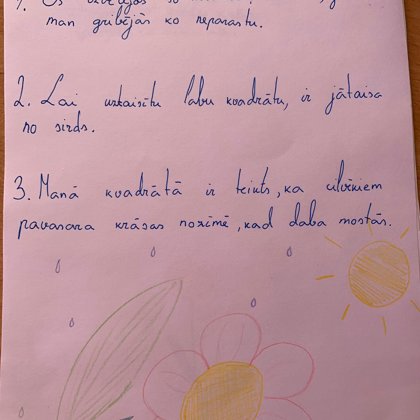 man gribējās ko neparastu.
2. Lai uztaisītu labu kvadrātu, ir jātaisa
no sirds.
3. Manā kvadrātā ir teikts, ka cilvēkiem
pavasara krāsas nozīmē, kad daba mostās.